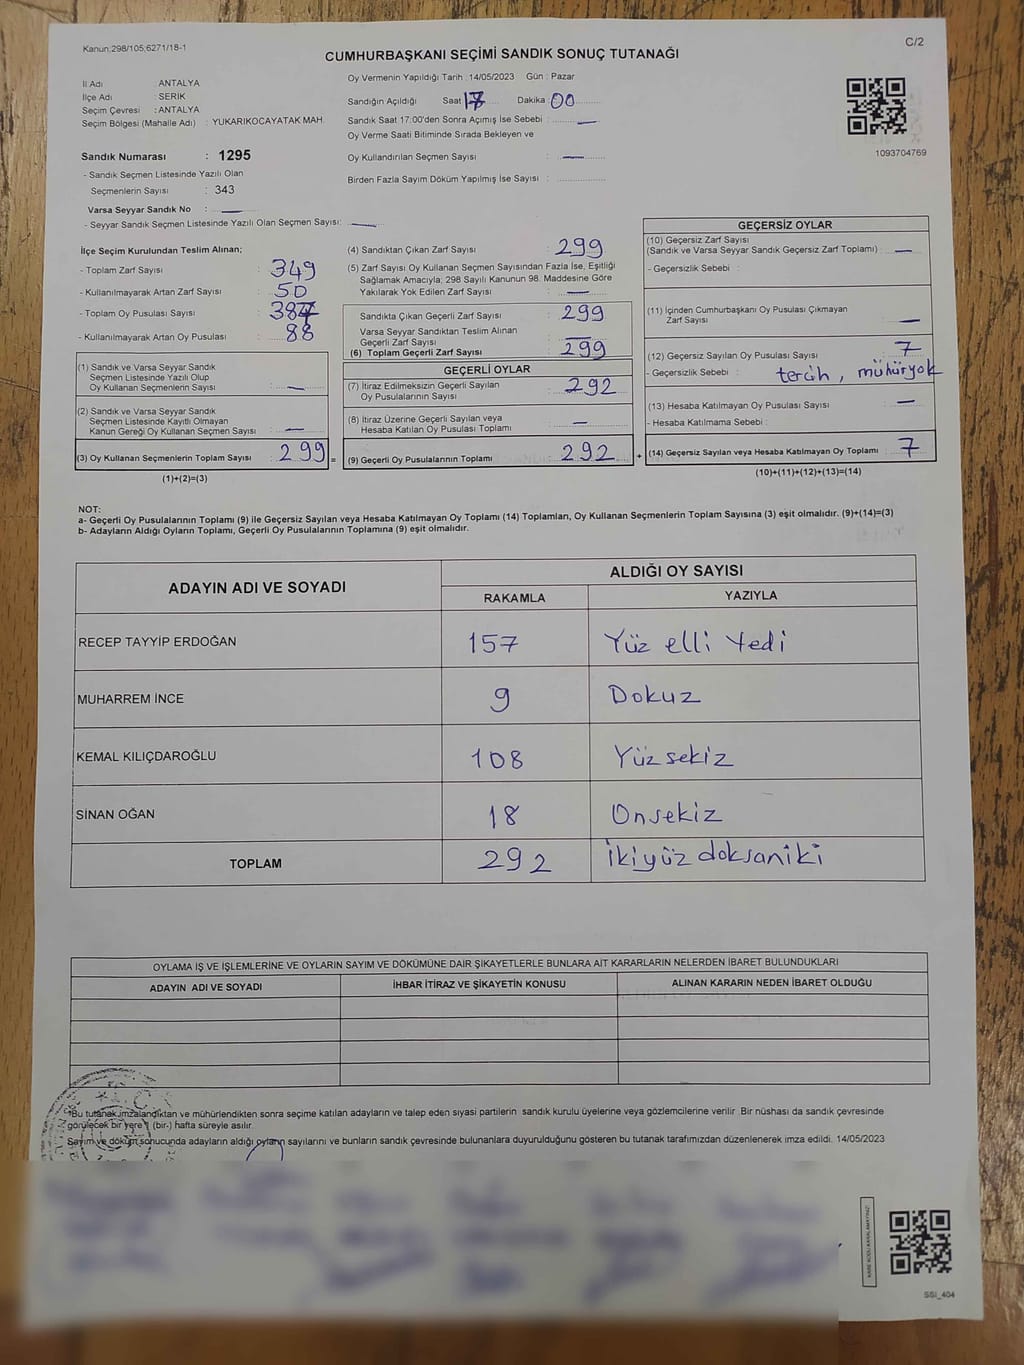 Kanun:298/105;6271/18-1
C/2
CUMHURBAŞKANI SEÇİMİ SANDIK SONUÇ TUTANAĞI
İl Adı : ANTALYA
İlçe Adı : SERİK
Seçim Çevresi : ANTALYA
Seçim Bölgesi (Mahalle Adı) : YUKARIKOCAYATAK MAH.
Sandık Numarası : 1295
- Sandık Seçmen Listesinde Yazılı Olan
Seçmenlerin Sayısı : 343
Varsa Seyyar Sandık No : —
- Seyyar Sandık Seçmen Listesinde Yazılı Olan Seçmen Sayısı: —
Oy Vermenin Yapıldığı Tarih : 14/05/2023 Gün : Pazar
Sandığın Açıldığı Saat 17 Dakika : 00
Sandık Saat 17:00'den Sonra Açımış İse Sebebi : —
Oy Verme Saati Bitiminde Sırada Bekleyen ve
Oy Kullandırılan Seçmen Sayısı : —
Birden Fazla Sayım Döküm Yapılmış İse Sayısı :
1093704769
İlçe Seçim Kurulundan Teslim Alınan;
- Toplam Zarf Sayısı : 349
- Kullanılmayarak Artan Zarf Sayısı : 50
- Toplam Oy Pusulası Sayısı : 387
- Kullanılmayarak Artan Oy Pusulası : 88
(1) Sandık ve Varsa Seyyar Sandık
Seçmen Listesinde Yazılı Olup
Oy Kullanan Seçmenlerin Sayısı : —
(2) Sandık ve Varsa Seyyar Sandık
Seçmen Listesinde Kayıtlı Olmayan
Kanun Gereği Oy Kullanan Seçmen Sayısı : —
(3) Oy Kullanan Seçmenlerin Toplam Sayısı : 299 =
(1)+(2)=(3)
(4) Sandıktan Çıkan Zarf Sayısı : 299
(5) Zarf Sayısı Oy Kullanan Seçmen Sayısından Fazla İse, Eşitliği
Sağlamak Amacıyla; 298 Sayılı Kanunun 98. Maddesine Göre
Yakılarak Yok Edilen Zarf Sayısı : —
Sandıkta Çıkan Geçerli Zarf Sayısı : 299
Varsa Seyyar Sandıktan Teslim Alınan
Geçerli Zarf Sayısı : —
(6) Toplam Geçerli Zarf Sayısı : 299
GEÇERLİ OYLAR
(7) İtiraz Edilmeksizin Geçerli Sayılan
Oy Pusulalarının Sayısı : 292
(8) İtiraz Üzerine Geçerli Sayılan veya
Hesaba Katılan Oy Pusulası Toplamı : —
(9) Geçerli Oy Pusulalarının Toplamı : 292 +
GEÇERSİZ OYLAR
(10) Geçersiz Zarf Sayısı
(Sandık ve Varsa Seyyar Sandık Geçersiz Zarf Toplamı) : —
- Geçersizlik Sebebi :
(11) İçinden Cumhurbaşkanı Oy Pusulası Çıkmayan
Zarf Sayısı : —
(12) Geçersiz Sayılan Oy Pusulası Sayısı : 7
- Geçersizlik Sebebi : tercih, mühüryok
(13) Hesaba Katılmayan Oy Pusulası Sayısı : —
- Hesaba Katılmama Sebebi :
(14) Geçersiz Sayılan veya Hesaba Katılmayan Oy Toplamı : 7
(10)+(11)+(12)+(13)=(14)
NOT:
a- Geçerli Oy Pusulalarının Toplamı (9) ile Geçersiz Sayılan veya Hesaba Katılmayan Oy Toplamı (14) Toplamları, Oy Kullanan Seçmenlerin Toplam Sayısına (3) eşit olmalıdır. (9)+(14)=(3)
b- Adayların Aldığı Oyların Toplamı, Geçerli Oy Pusulalarının Toplamına (9) eşit olmalıdır.
ADAYIN ADI VE SOYADI ALDIĞI OY SAYISI
RAKAMLA YAZIYLA
RECEP TAYYİP ERDOĞAN 157 Yüz elli Yedi
MUHARREM İNCE 9 Dokuz
KEMAL KILIÇDAROĞLU 108 Yüzsekiz
SİNAN OĞAN 18 Onsekiz
TOPLAM 292 ikiyüzdoksaniki
OYLAMA İŞ VE İŞLEMLERİNE VE OYLARIN SAYIM VE DÖKÜMÜNE DAİR ŞİKAYETLERLE BUNLARA AİT KARARLARIN NELERDEN İBARET BULUNDUKLARI
ADAYIN ADI VE SOYADI İHBAR İTİRAZ VE ŞİKAYETİN KONUSU ALINAN KARARIN NEDEN İBARET OLDUĞU
*Bu tutanak imzalandıktan ve mühürlendikten sonra seçime katılan adayların ve talep eden siyasi partilerin sandık kurulu üyelerine veya gözlemcilerine verilir. Bir nüshası da sandık çevresinde
görülecek bir yere 1 (bir-) hafta süreyle asılır.
Sayım ve döküm sonucunda adayların aldığı oyların sayılarını ve bunların sandık çevresinde bulunanlara duyurulduğunu gösteren bu tutanak tarafımızdan düzenlenerek imza edildi. 14/05/2023
KARE KODU KARALAMAYINIZ!
SSİ_404